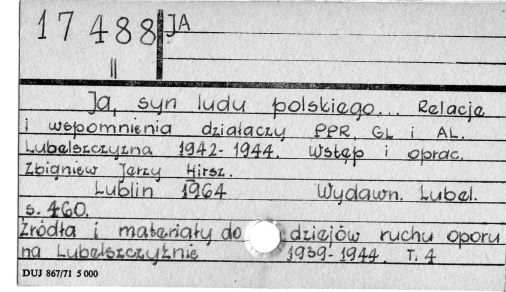 17488 JA
II
Ja, syn ludu polskiego... Relacje
i wspomnienia działaczy PPR, GL i AL.
Lubelszczyzna 1942-1944. Wstęp i oprac.
Zbigniew Jerzy Hirsz.
Lublin 1964 Wydawn. Lubel.
s. 460.
Źródła i materiały do dziejów ruchu oporu
na Lubelszczyźnie 1939-1944. T. 4
DUJ 867/71 5 000